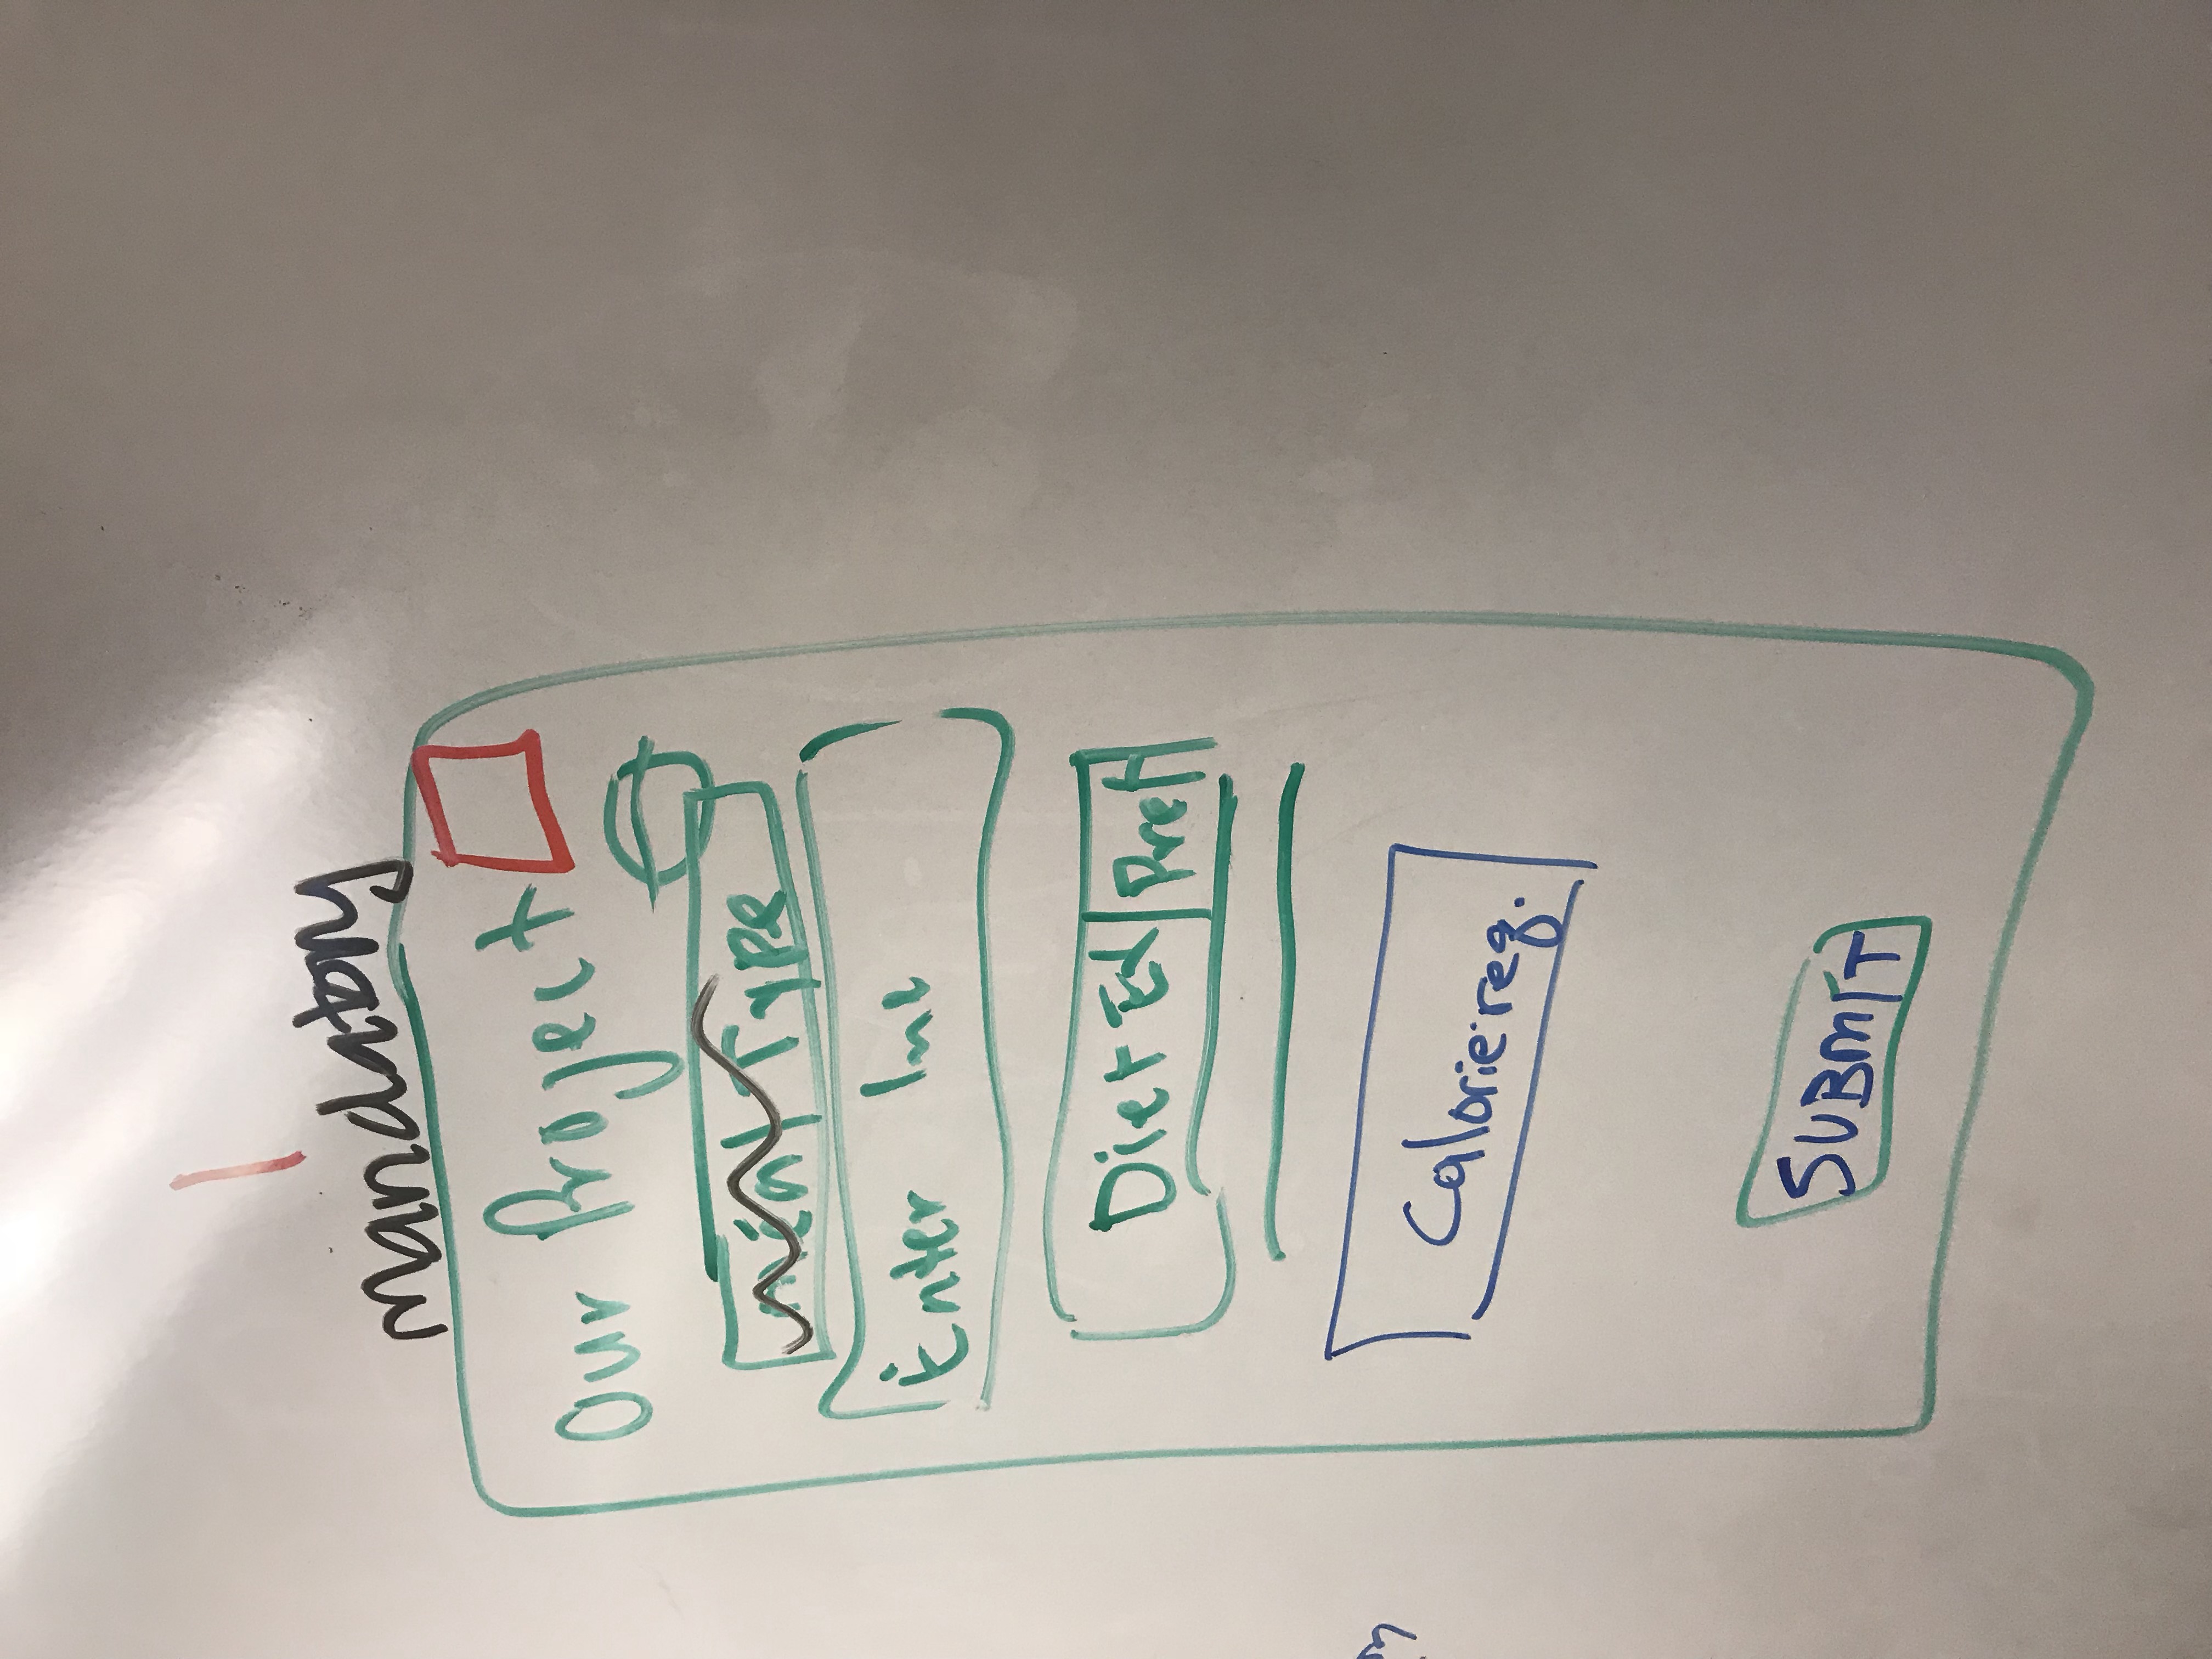 mandatory
Our Project
meal Type
Enter
Diet Pref
Calorie req.
SUBMIT